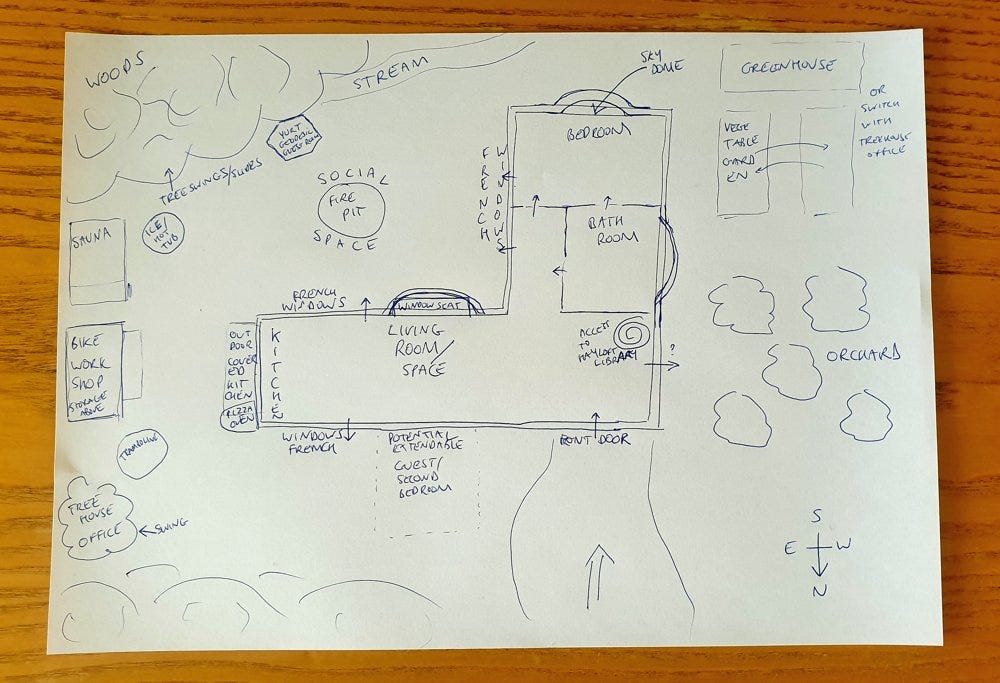 WOODS
STREAM
SKY
DOME
GREENHOUSE
OR
SWITCH
WITH
TREEHOUSE
OFFICE
VEGE
TABLE
GARD
EN
YURT
GEODESIC
GUEST ROOM
TREESWINGS/SLIDES
SOCIAL
FIRE
PIT
SPACE
FRENCH
WINDOWS
BEDROOM
BATH
ROOM
SAUNA
ICE/
HOT
TUB
FRENCH
WINDOWS
WINDOW SEAT
LIVING
ROOM/
SPACE
ACCESS
TO
HAYLOFT
LIBRARY
?
ORCHARD
BIKE
WORK
SHOP
STORAGE
ABOVE
OUT
DOOR
COVER
ED
KIT
CHEN
PIZZA
OVEN
KITCHEN
WINDOWS
FRENCH
POTENTIAL
EXTENDABLE
GUEST/
SECOND
BEDROOM
FRONT DOOR
TRAMPOLINE
TREE
HOUSE
OFFICE
SWING
S
E W
N